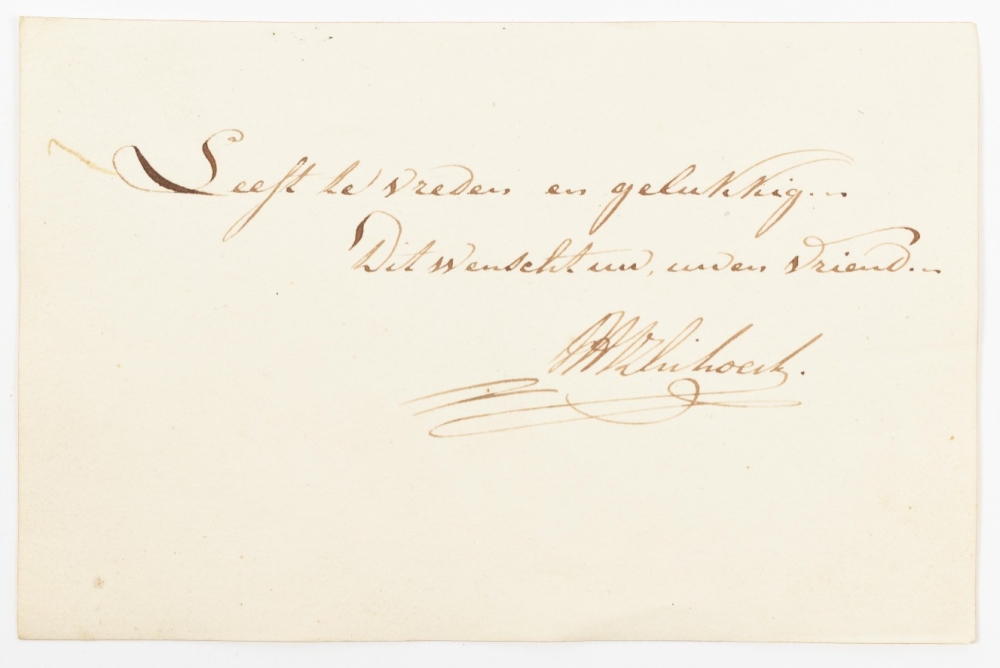 Leeft te vreden en gelukkig..
Dit wenscht uw, uwen vriend..